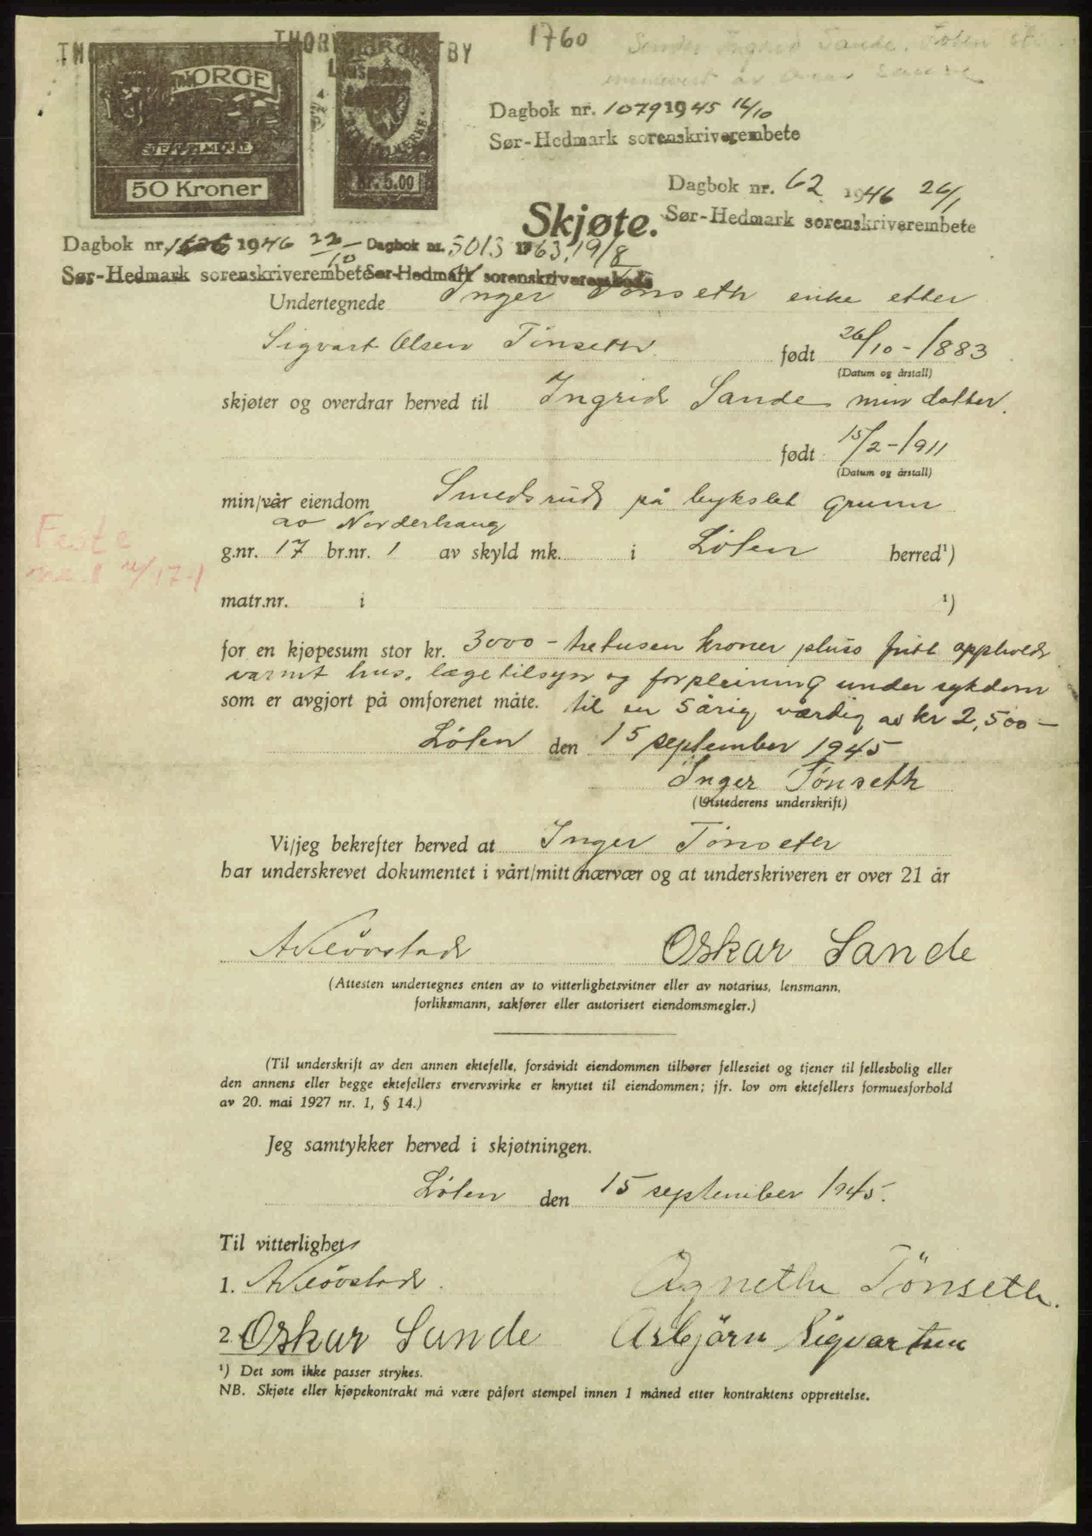 1760
Dagbok nr. 1079 1945 16/10
Sør-Hedmark sorenskriverembete
NORGE
STEMPELMERKE
50 Kroner
Kr. 5.00
Dagbok nr. 62 1946 26/1
Sør-Hedmark sorenskriverembete
Skjøte.
Dagbok nr. 1946 22/10
Sør-Hedmark sorenskriverembete
Dagbok nr. 5013 1963 19/8
Sør-Hedmark sorenskriverembete
Undertegnede Inger Tønseth enke etter
Sigvart Olsen Tønseth født 26/10-1883
(Datum og årstall)
skjøter og overdrar herved til Ingrid Sande min datter.
født 15/2-1911
(Datum og årstall)
min/vår eiendom Smedsrud på bykslet grunn
av Norderhaug
g.nr. 17 br.nr. 1 av skyld mk. i Løten herred¹)
Feste
matr.nr. i ¹)
for en kjøpesum stor kr. 3000 - tretusen kroner pluss fritt opphold
varmt hus, lægetilsyn og forpleining under sykdom
som er avgjort på omforenet måte. til en 5årig værdig av kr 2,500-
Løten den 15 september 1945
Inger Tønseth
(Utstederens underskrift)
Vi/jeg bekrefter herved at Inger Tønseth
har underskrevet dokumentet i vårt/mitt nærvær og at underskriveren er over 21 år
Oskar Sande
(Attesten undertegnes enten av to vitterlighetsvitner eller av notarius, lensmann,
forliksmann, sakfører eller autorisert eiendomsmegler.)
(Til underskrift av den annen ektefelle, forsåvidt eiendommen tilhører felleseiet og tjener til fellesbolig eller
den annens eller begge ektefellers ervervsvirke er knyttet til eiendommen; jfr. lov om ektefellers formuesforhold
av 20. mai 1927 nr. 1, § 14.)
Jeg samtykker herved i skjøtningen.
Løten den 15 september 1945.
Til vitterlighet
1.
Agnethe Tønseth.
2. Oskar Sande
Asbjörn Sigvartsen
¹) Det som ikke passer strykes.
NB. Skjøte eller kjøpekontrakt må være påført stempel innen 1 måned etter kontraktens opprettelse.